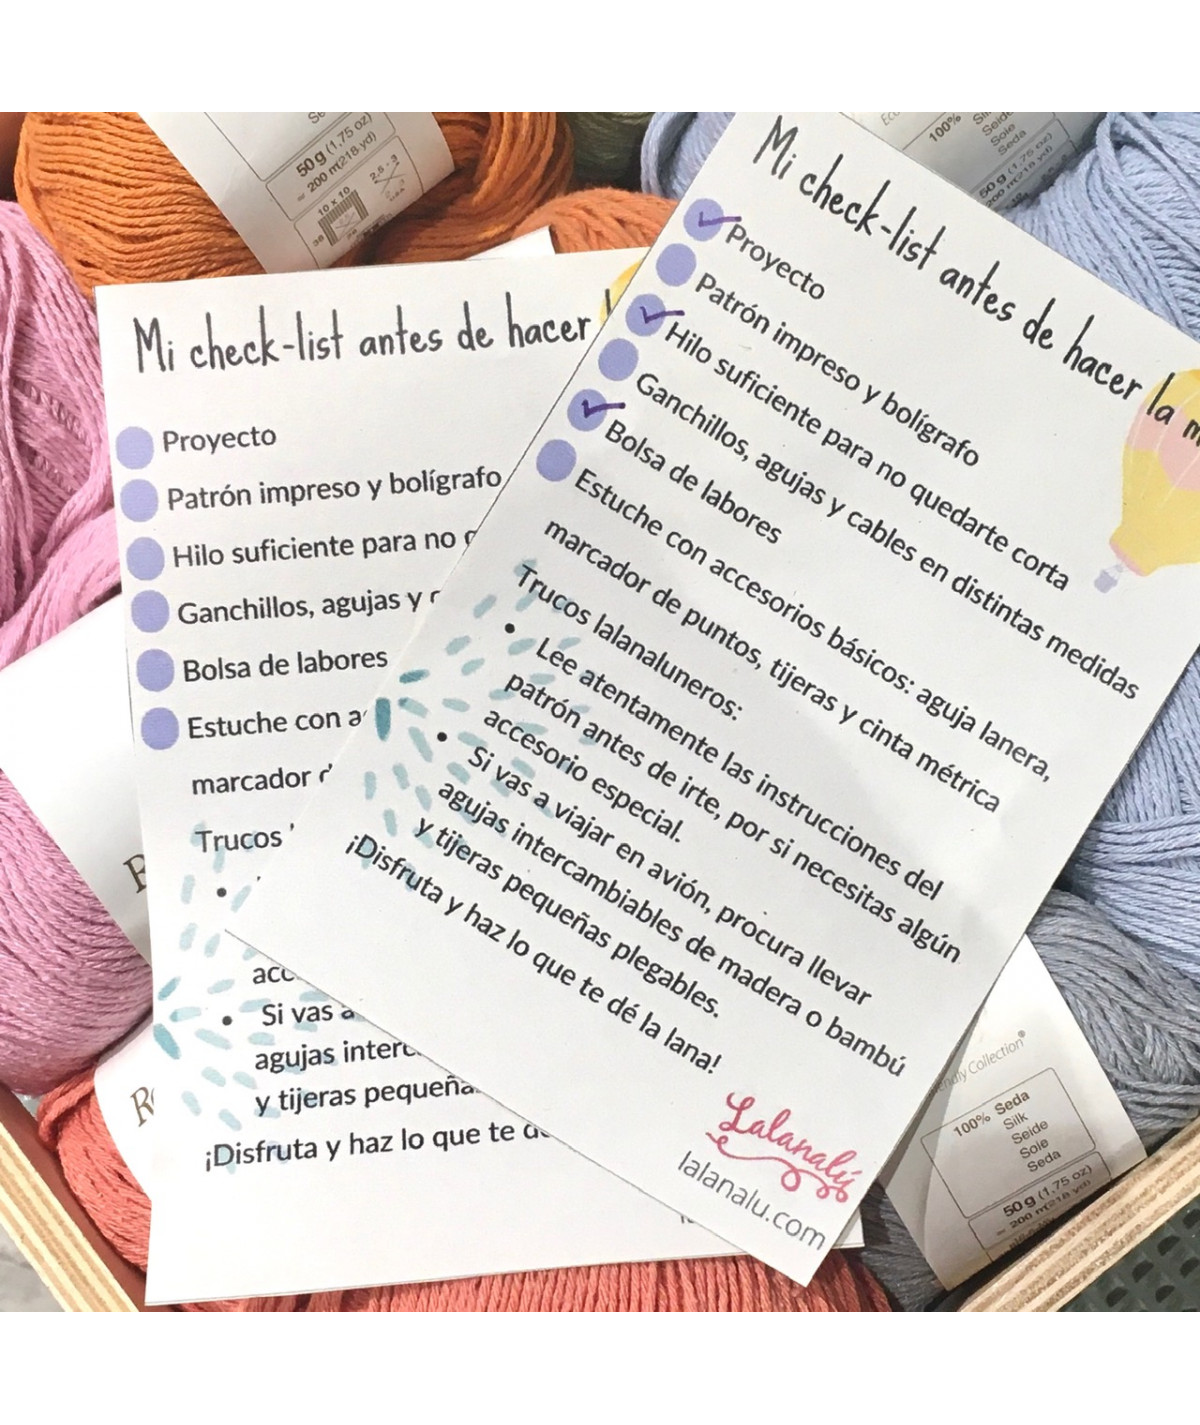 50 g (1,75 oz)
≈ 200 m(218 yd)
10 x 10
2,5 - 3
100%
50 g (1,75 oz)
Mi check-list antes de hacer la m
Proyecto
Patrón impreso y bolígrafo
Hilo suficiente para no quedarte corta
Ganchillos, agujas y cables en distintas medidas
Bolsa de labores
Estuche con accesorios básicos: aguja lanera,
marcador de puntos, tijeras y cinta métrica
Trucos lalanaluneros:
• Lee atentamente las instrucciones del
patrón antes de irte, por si necesitas algún
accesorio especial.
• Si vas a viajar en avión, procura llevar
agujas intercambiables de madera o bambú
y tijeras pequeñas plegables.
¡Disfruta y haz lo que te dé la lana!
Lalanalú
lalanalu.com
Mi check-list antes de hacer
Proyecto
Patrón impreso y bolígrafo
Hilo suficiente para no
Ganchillos, agujas y
Bolsa de labores
Estuche con a
marcador
Trucos
•
acc
• Si vas a
agujas interc
y tijeras pequeña
¡Disfruta y haz lo que te
Collection®
100% Seda
Silk
Seide
Soie
Seda
50 g (1,75 oz)
≈ 200 m(218 yd)